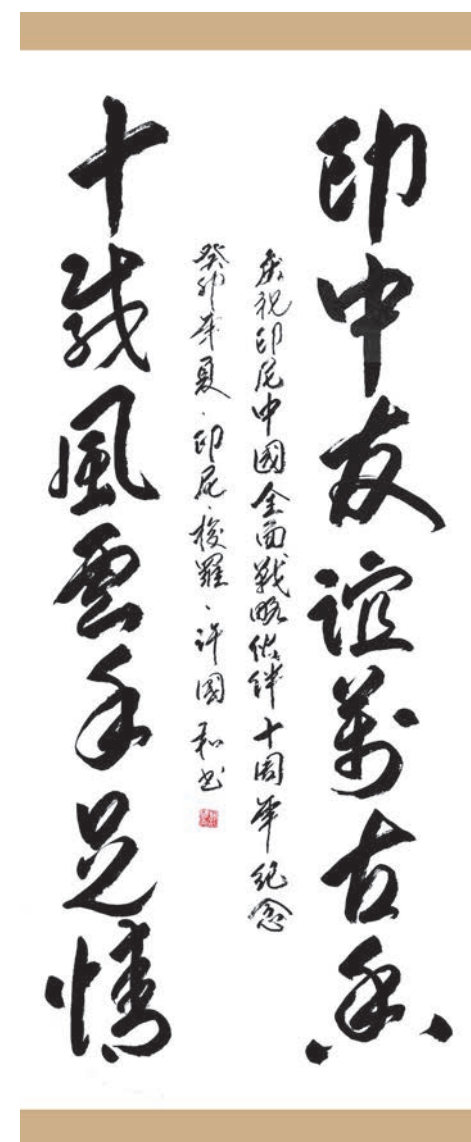 印中友谊萬古香
慶祝印尼中國全面戰略伙伴十周年纪念
癸卯年夏·印尼·梭羅·许國和书
十载風雲手足情